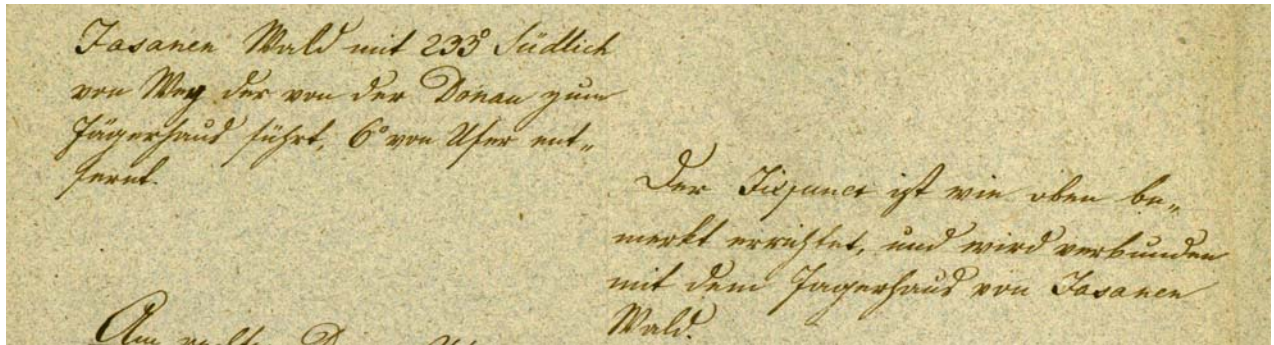 Fasanen Wald mit 233° Südlich
von Weg der von der Donau zum
Jägerhaus führt, 6° von Ufer ent„
fernt.
Der Fixpunct ist wie oben be„
merkt errichtet, und wird verbunden
mit dem Jagerhaus von Fasanen
Wald.
Am rechten Donau Ufer